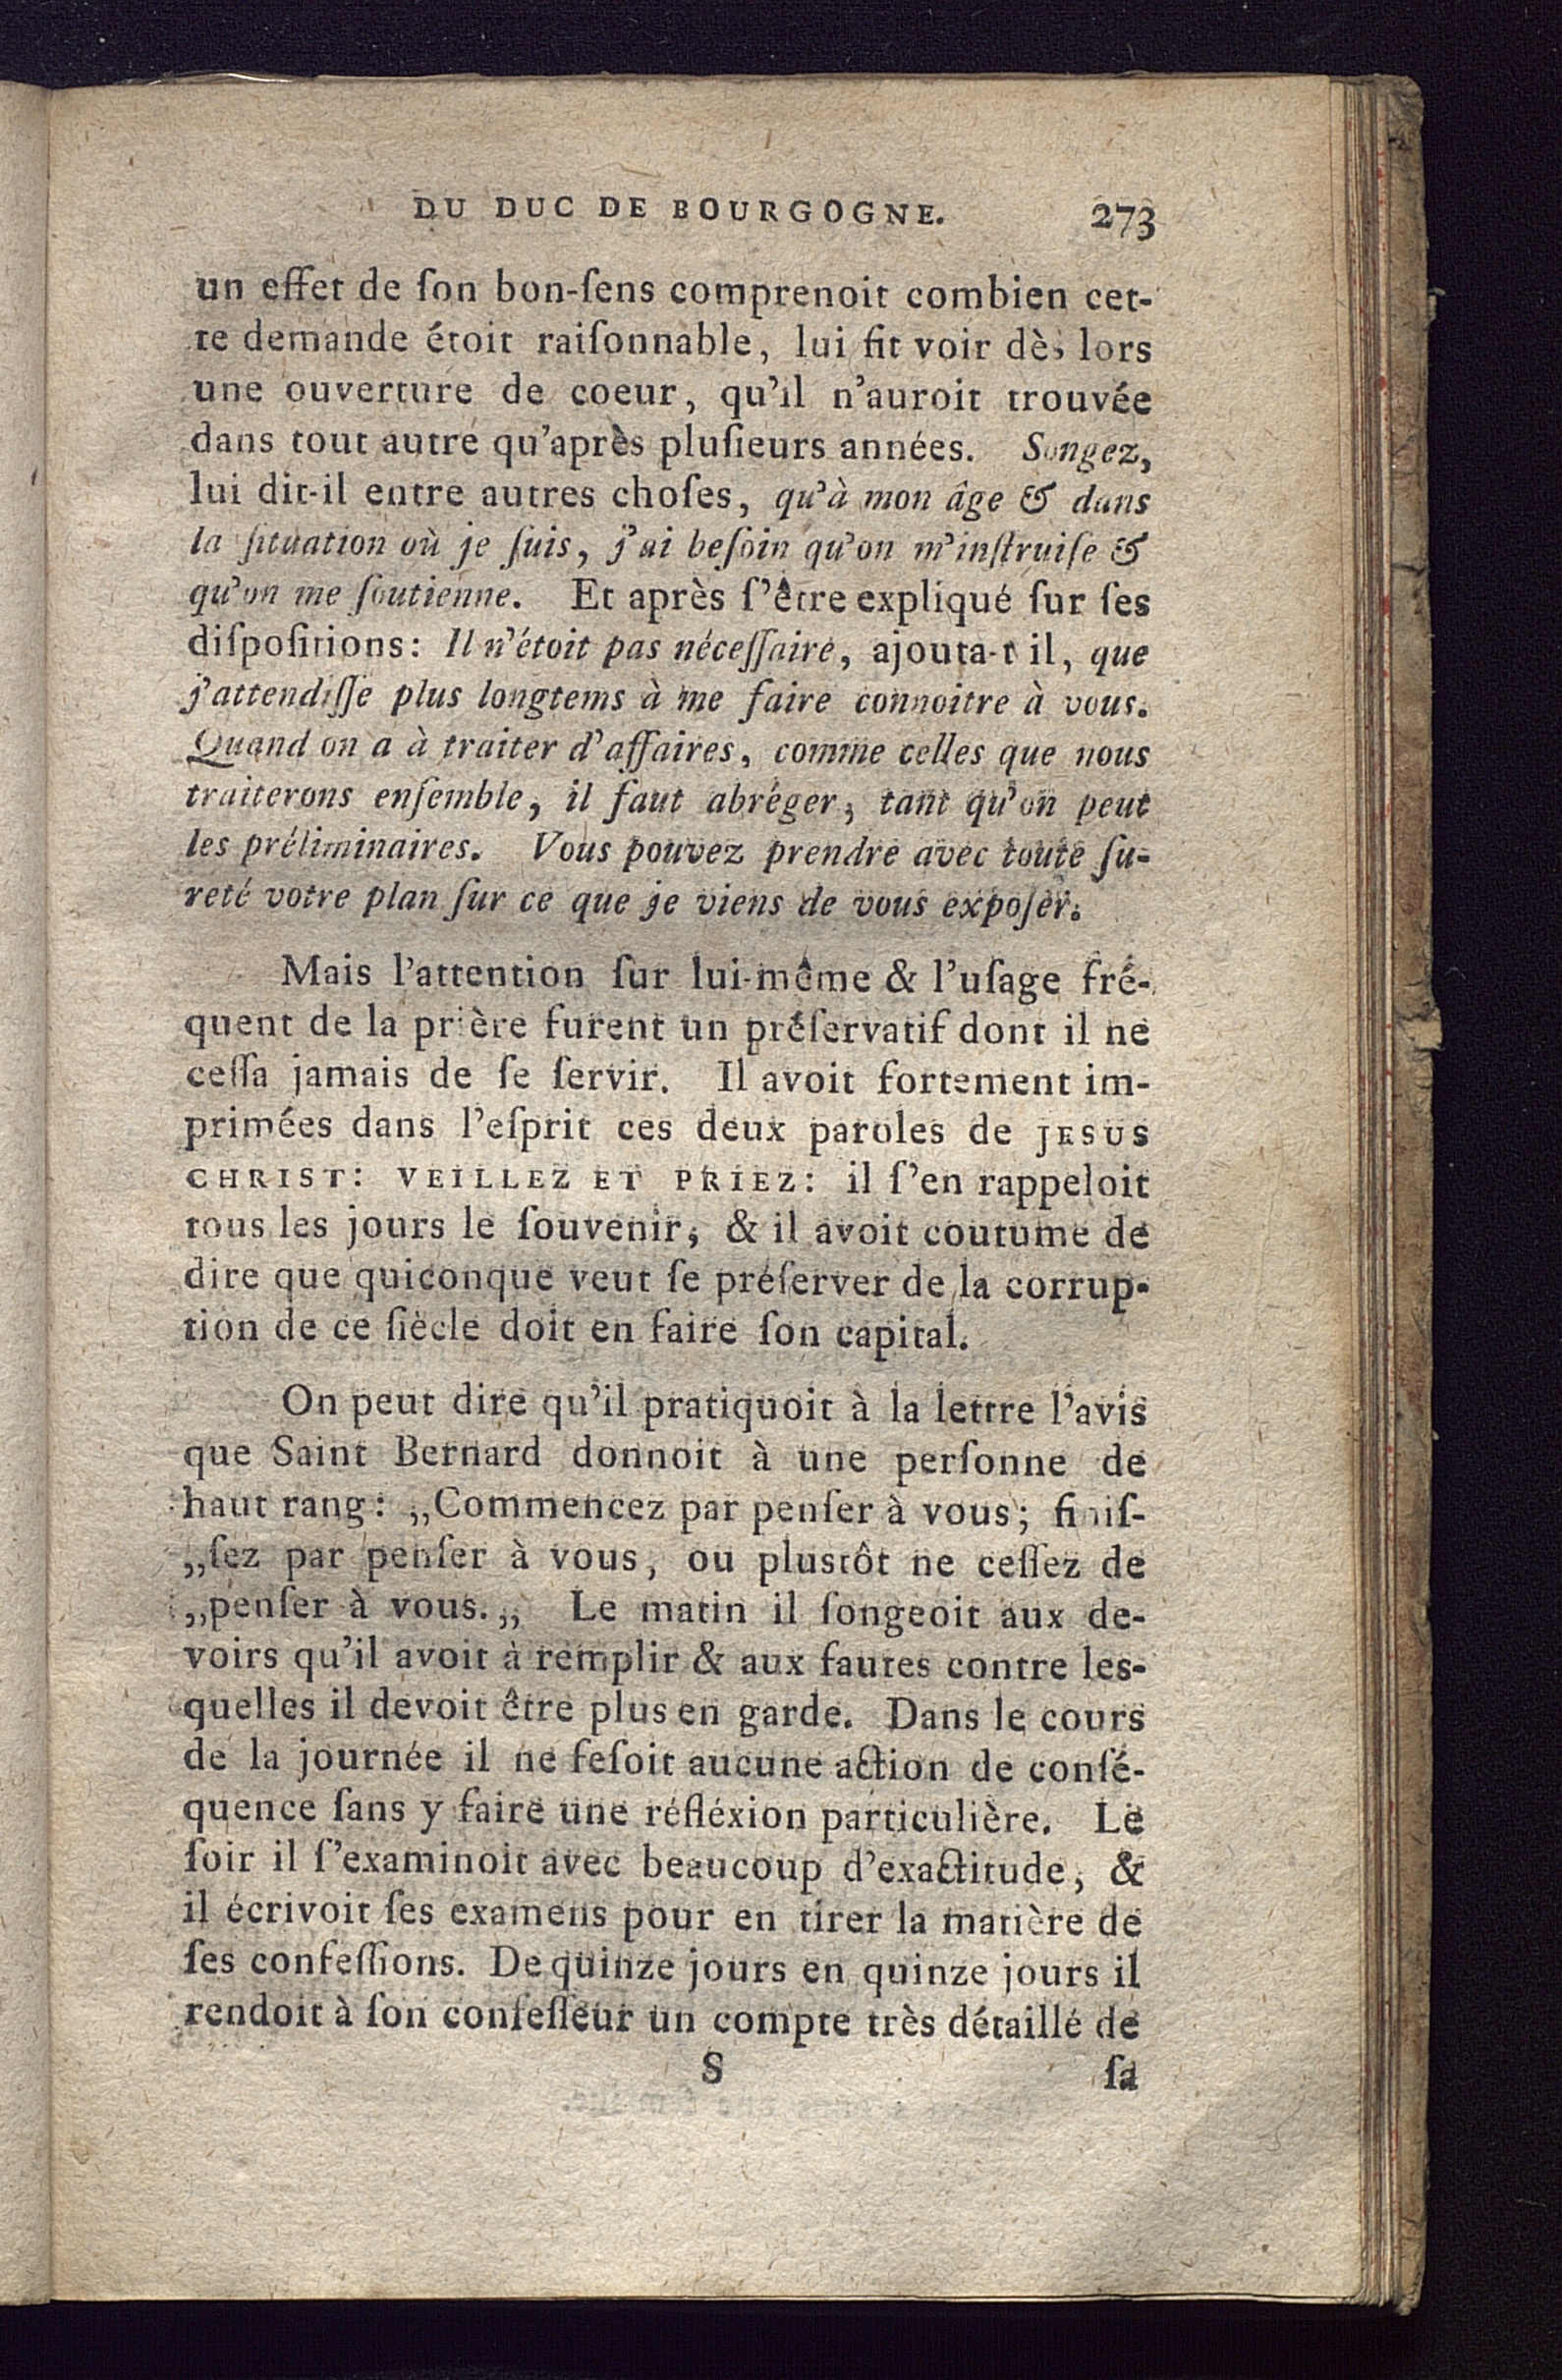 DU DUC DE BOURGOGNE. 273
un effet de ſon bon-ſens comprenoit combien cet-
te demande étoit raiſonnable, lui fit voir dès lors
une ouverture de coeur, qu'il n'auroit trouvée
dans tout autre qu'après pluſieurs années. Songez,
lui dit-il entre autres choſes, qu'à mon âge & dans
la ſituation où je ſuis, j'ai beſoin qu'on m'inſtruiſe &
qu'on me ſoutienne. Et après ſ'être expliqué ſur ſes
diſpoſitions: Il n'étoit pas néceſſaire, ajouta-t il, que
j'attendiſſe plus longtems à me faire connoitre à vous.
Quand on a à traiter d'affaires, comme celles que nous
traiterons enſemble, il faut abréger, tant qu'on peut
les préliminaires. Vous pouvez prendre avec toute ſu-
reté votre plan ſur ce que je viens de vous expoſer.
Mais l'attention ſur lui-même & l'uſage fré-
quent de la prière furent un préſervatif dont il ne
ceſſa jamais de ſe ſervir. Il avoit fortement im-
primées dans l'eſprit ces deux paroles de JESUS
CHRIST: VEILLEZ ET PRIEZ: il ſ'en rappeloit
tous les jours le ſouvenir, & il avoit coutume de
dire que quiconque veut ſe préſerver de la corrup-
tion de ce ſiècle doit en faire ſon capital.
On peut dire qu'il pratiquoit à la lettre l'avis
que Saint Bernard donnoit à une perſonne de
haut rang: „Commencez par penſer à vous; finiſ-
„ſez par penſer à vous, ou plustôt ne ceſſez de
„penſer à vous.„ Le matin il ſongeoit aux de-
voirs qu'il avoit à remplir & aux fautes contre les-
quelles il devoit être plus en garde. Dans le cours
de la journée il ne feſoit aucune action de conſé-
quence ſans y faire une réfléxion particulière. Le
ſoir il ſ'examinoit avec beaucoup d'exactitude, &
il écrivoit ſes examens pour en tirer la matière de
ſes confeſſions. De quinze jours en quinze jours il
rendoit à ſon confeſſeur un compte très détaillé de
S ſa